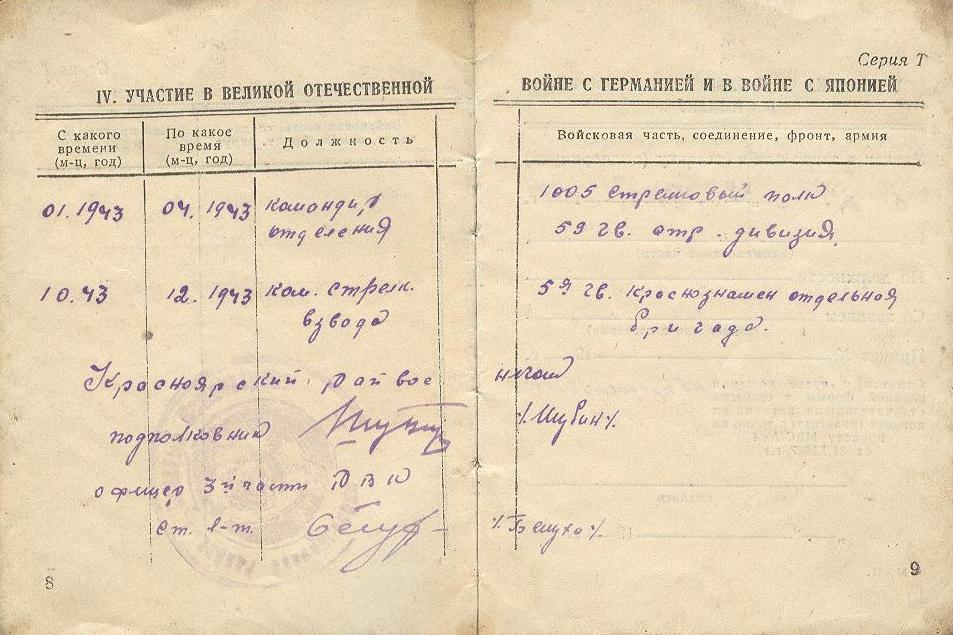 Серия Т
IV. УЧАСТИЕ В ВЕЛИКОЙ ОТЕЧЕСТВЕННОЙ ВОЙНЕ С ГЕРМАНИЕЙ И В ВОЙНЕ С ЯПОНИЕЙ
С какого времени (м-ц, год)
По какое время (м-ц, год)
Должность
Войсковая часть, соединение, фронт, армия
01.1943 04.1943 командир 1005 стрелковый полк
отделения 59 гв. стр. дивизия,
10.43 12.1943 ком. стрелк. 59 гв. Краснознамен отдельная
взвода бригада.
Красноярский райвоенком
подполковник /Шубин/.
офицер 3й части РВК
ст. л-т. /Белухо/
8
9